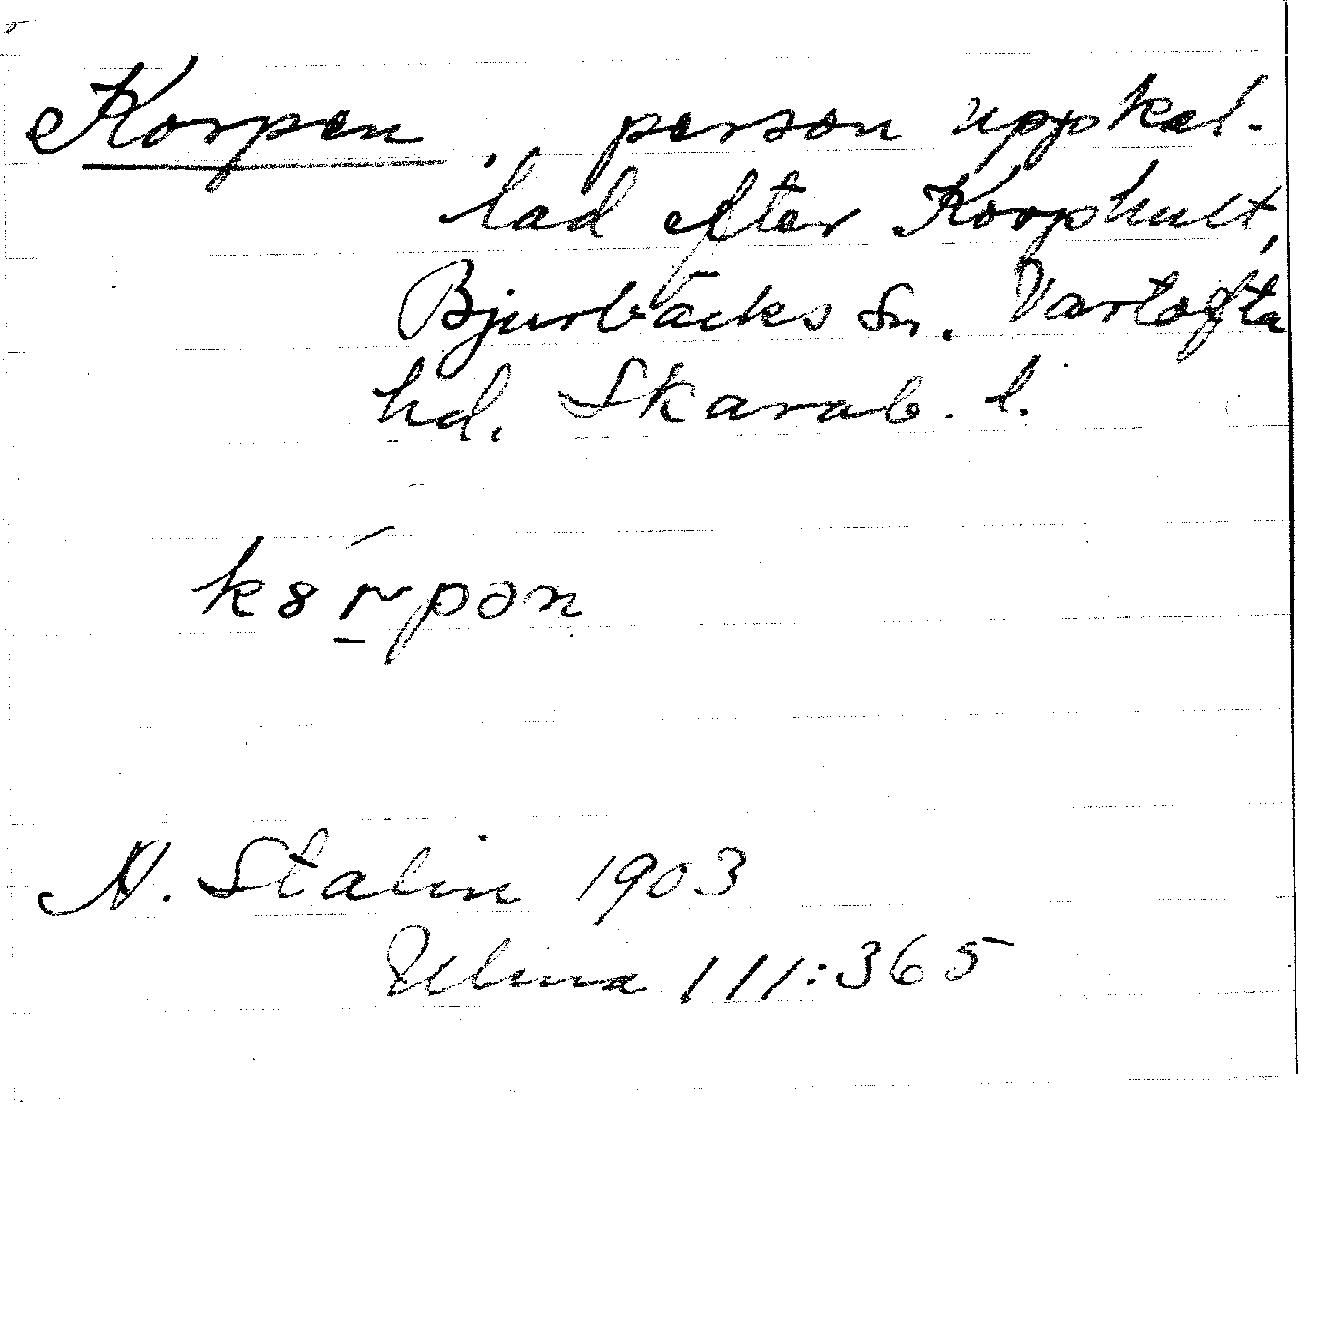 Korpen, person uppkal-
lad efter Korphult,
Bjurbäcks sn. Vartofta
hd. Skarab. l.
k8r̠pən
N. Stålin 1903
Ulma 111:365